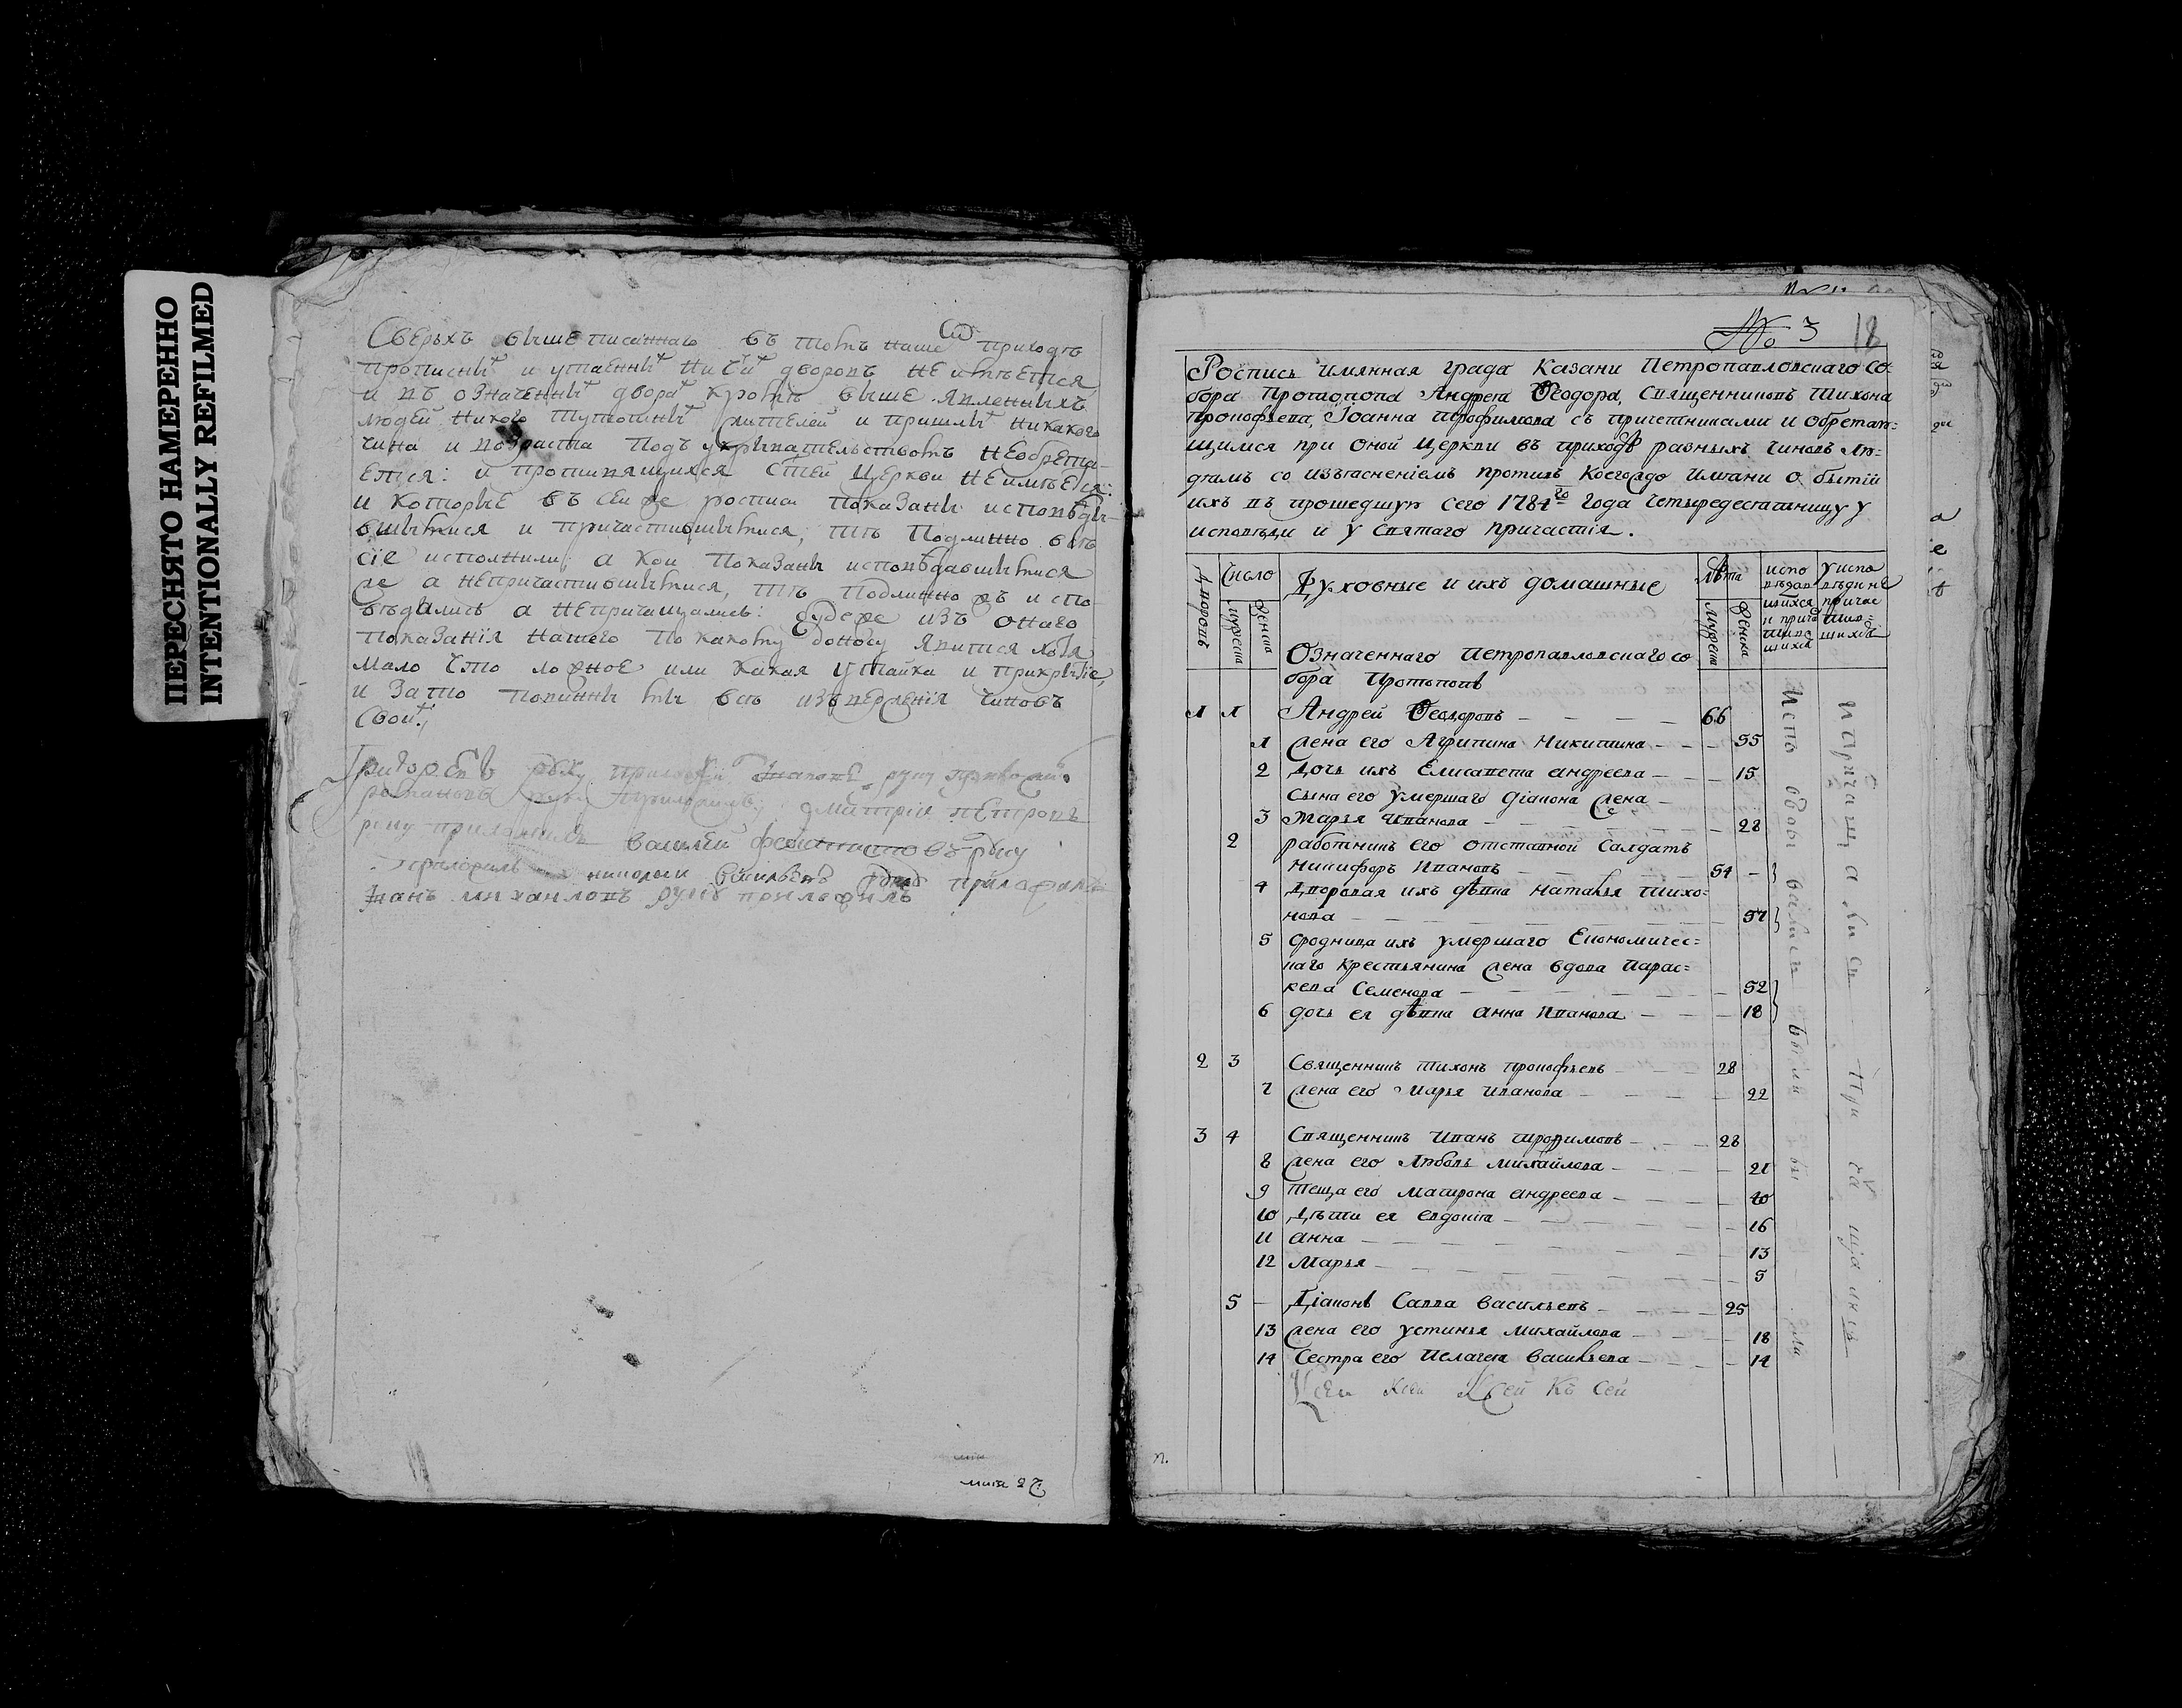 ПЕРЕСНЯТО НАМЕРЕННО
INTENTIONALLY REFILMED
Сверьхъ вышеписаннаго въ томъ наше приходѣ
прописны и утаенны ни чи дворовъ не имѣется
и въ означенны двора кромѣ выше явленныхъ
людей никого тутошны жителей и пришлы никакого
чина и возраста подъ укрывательствомъ необрета-
ется: и противящихся стей церкви неимѣется:
и которые въ сей же росписи показаны исповѣда-
вшимися и причастившимися, тѣ подлинно все
сіе исполнили; а кои показаны исповѣдавшимися
же а непричастившимися, тѣ подлинно жъ испо-
вѣдались а непричащались: буде же изъ онаго
показанія нашего по какому доносу явится хотя
мало что ложное или какая утайка и прикрытіе,
и за то повинны мы все изверженія чиновъ
свои,
руку приложилъ Дмитрій Петровъ
руку приложилъ Василей руку
приложилъ николаи Васильевъ руку приложилъ
Иванъ михаиловъ руку приложилъ
№ 3 18
Роспись имянная града Казани Петропавловскаго со-
бора Протопопа Андрея Ѳеодора, Священниковъ Тихона
Прокофьева, Іоанна Трофимова съ причетниками и обретаю=
щимся при оной церкви въ приходѣ разныхъ чиновъ лю=
дямъ со изъясненіемъ противъ коегождо имяни о бытіи
ихъ въ прошедшую сего 1784 го года четыредесятницу у
исповѣди и у святаго причастія.
дворовъ
Число
мужеска
женска
Духовные и ихъ домашные
Лѣта
мужеска
женска
испо
вѣдав
шихся
и прича
стив
шихся
у испо
вѣди не
причас
тив=
шихся
Означеннаго Петропавловскаго со
бора Протопопъ
1 1 Андрей Ѳеодоровъ 66
1 жена его Агрипина Никитина 55
2 Дочь ихъ Елисавета Андреева 15
Сына его умершаго діакона жена
3 Марья Иванова 28
2 работникъ его отставной Салдатъ
Никифоръ Ивановъ 54
4 Дворовая ихъ дѣвка Наталья Тихо=
нова 57
5 Сродница ихъ умершаго Економичес=
каго Крестьянина жена вдова Парас=
кева Семенова 52
6 дочь ея дѣвка Анна Иванова 18
2 3 Священникъ Тихонъ Прокофьевъ 28
7 жена его Марья Иванова 22
3 4 Священникъ Иванъ Трофимовъ 28
8 жена его Любовь Михайлова 21
9 Теща его Матрона Андреева 40
10 Дѣти ея Евдокія 16
11 Анна 13
12 Марья 5
5 Діаконъ Савва Васильевъ 25
13 жена его Устинья Михайлова 18
14 Сестра его Пелагея Васильева 14
Къ сей